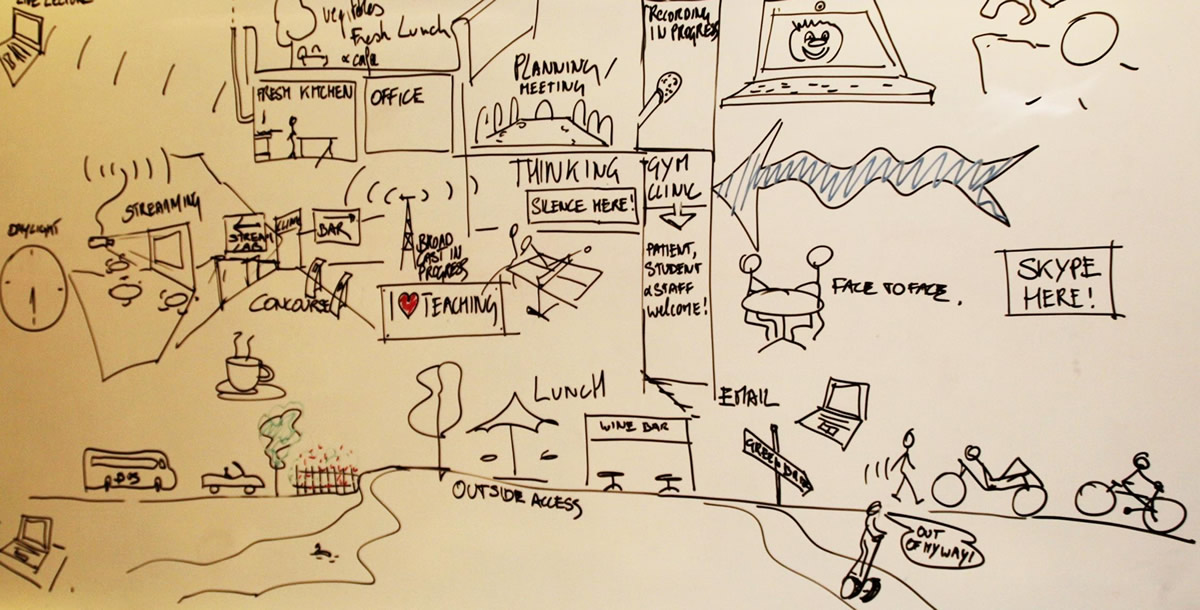 LIVE LECTURE
BAM
vegitables
Fresh Lunch
& cafe
FRESH KITCHEN
OFFICE
PLANNING/
MEETING
RECORDING
IN PROGRESS
THINKING
SILENCE HERE!
GYM
CLINIC
PATIENT,
STUDENT
& STAFF
WELCOME!
STREAMING
DAYLIGHT
STREAM
LAB
CLINIC
BAR
CONCOURSE
BROAD
CAST IN
PROGRESS
I ♥ TEACHING
FACE TO FACE.
SKYPE
HERE!
LUNCH
EMAIL
WINE BAR
BUS
OUTSIDE ACCESS
OUT
OF MY WAY!